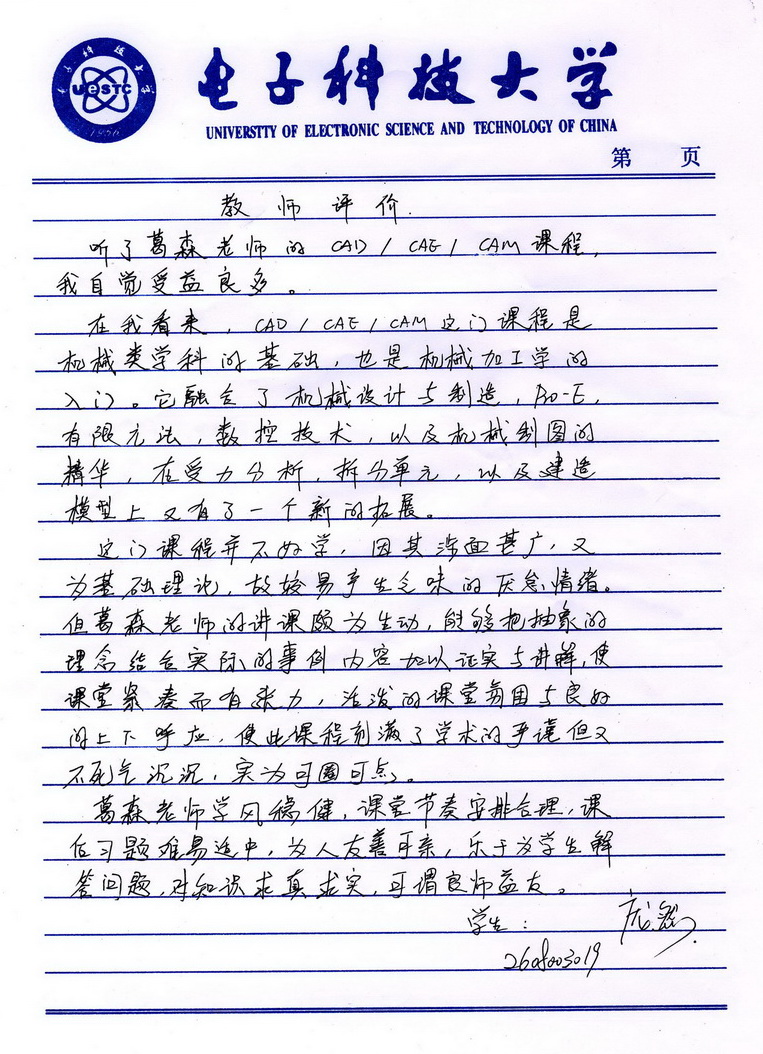 电子科技大学
UeSTC
1956
电子科技大学
UNIVERSTTY OF ELECTRONIC SCIENCE AND TECHNOLOGY OF CHINA
第 页
教师评价.
听了葛森老师的CAD/CAE/CAM课程,
我自觉受益良多。
在我看来,CAD/CAE/CAM这门课程是
机械类学科的基础,也是机械加工学的
入门。它融合了机械设计与制造,Pro-E,
有限元法,数控技术,以及机械制图的
精华,在受力分析,拆分单元,以及建造
模型上又有了一个新的拓展。
这门课程并不好学,因其涉面甚广,又
为基础理论,故较易产生乏味的厌怠情绪。
但葛森老师的讲课颇为生动,能够把抽象的
理念结合实际的事例内容加以证实与讲解,使
课堂紧凑而有张力,活泼的课堂氛围与良好
的上下呼应,使此课程刻满了学术的严谨但又
不死气沉沉,实为可圈可点。
葛森老师学风稳健,课堂节奏安排合理,课
后习题难易适中,为人友善可亲,乐于为学生解
答问题,对知识求真求实,可谓良师益友。
学生:
2608003019